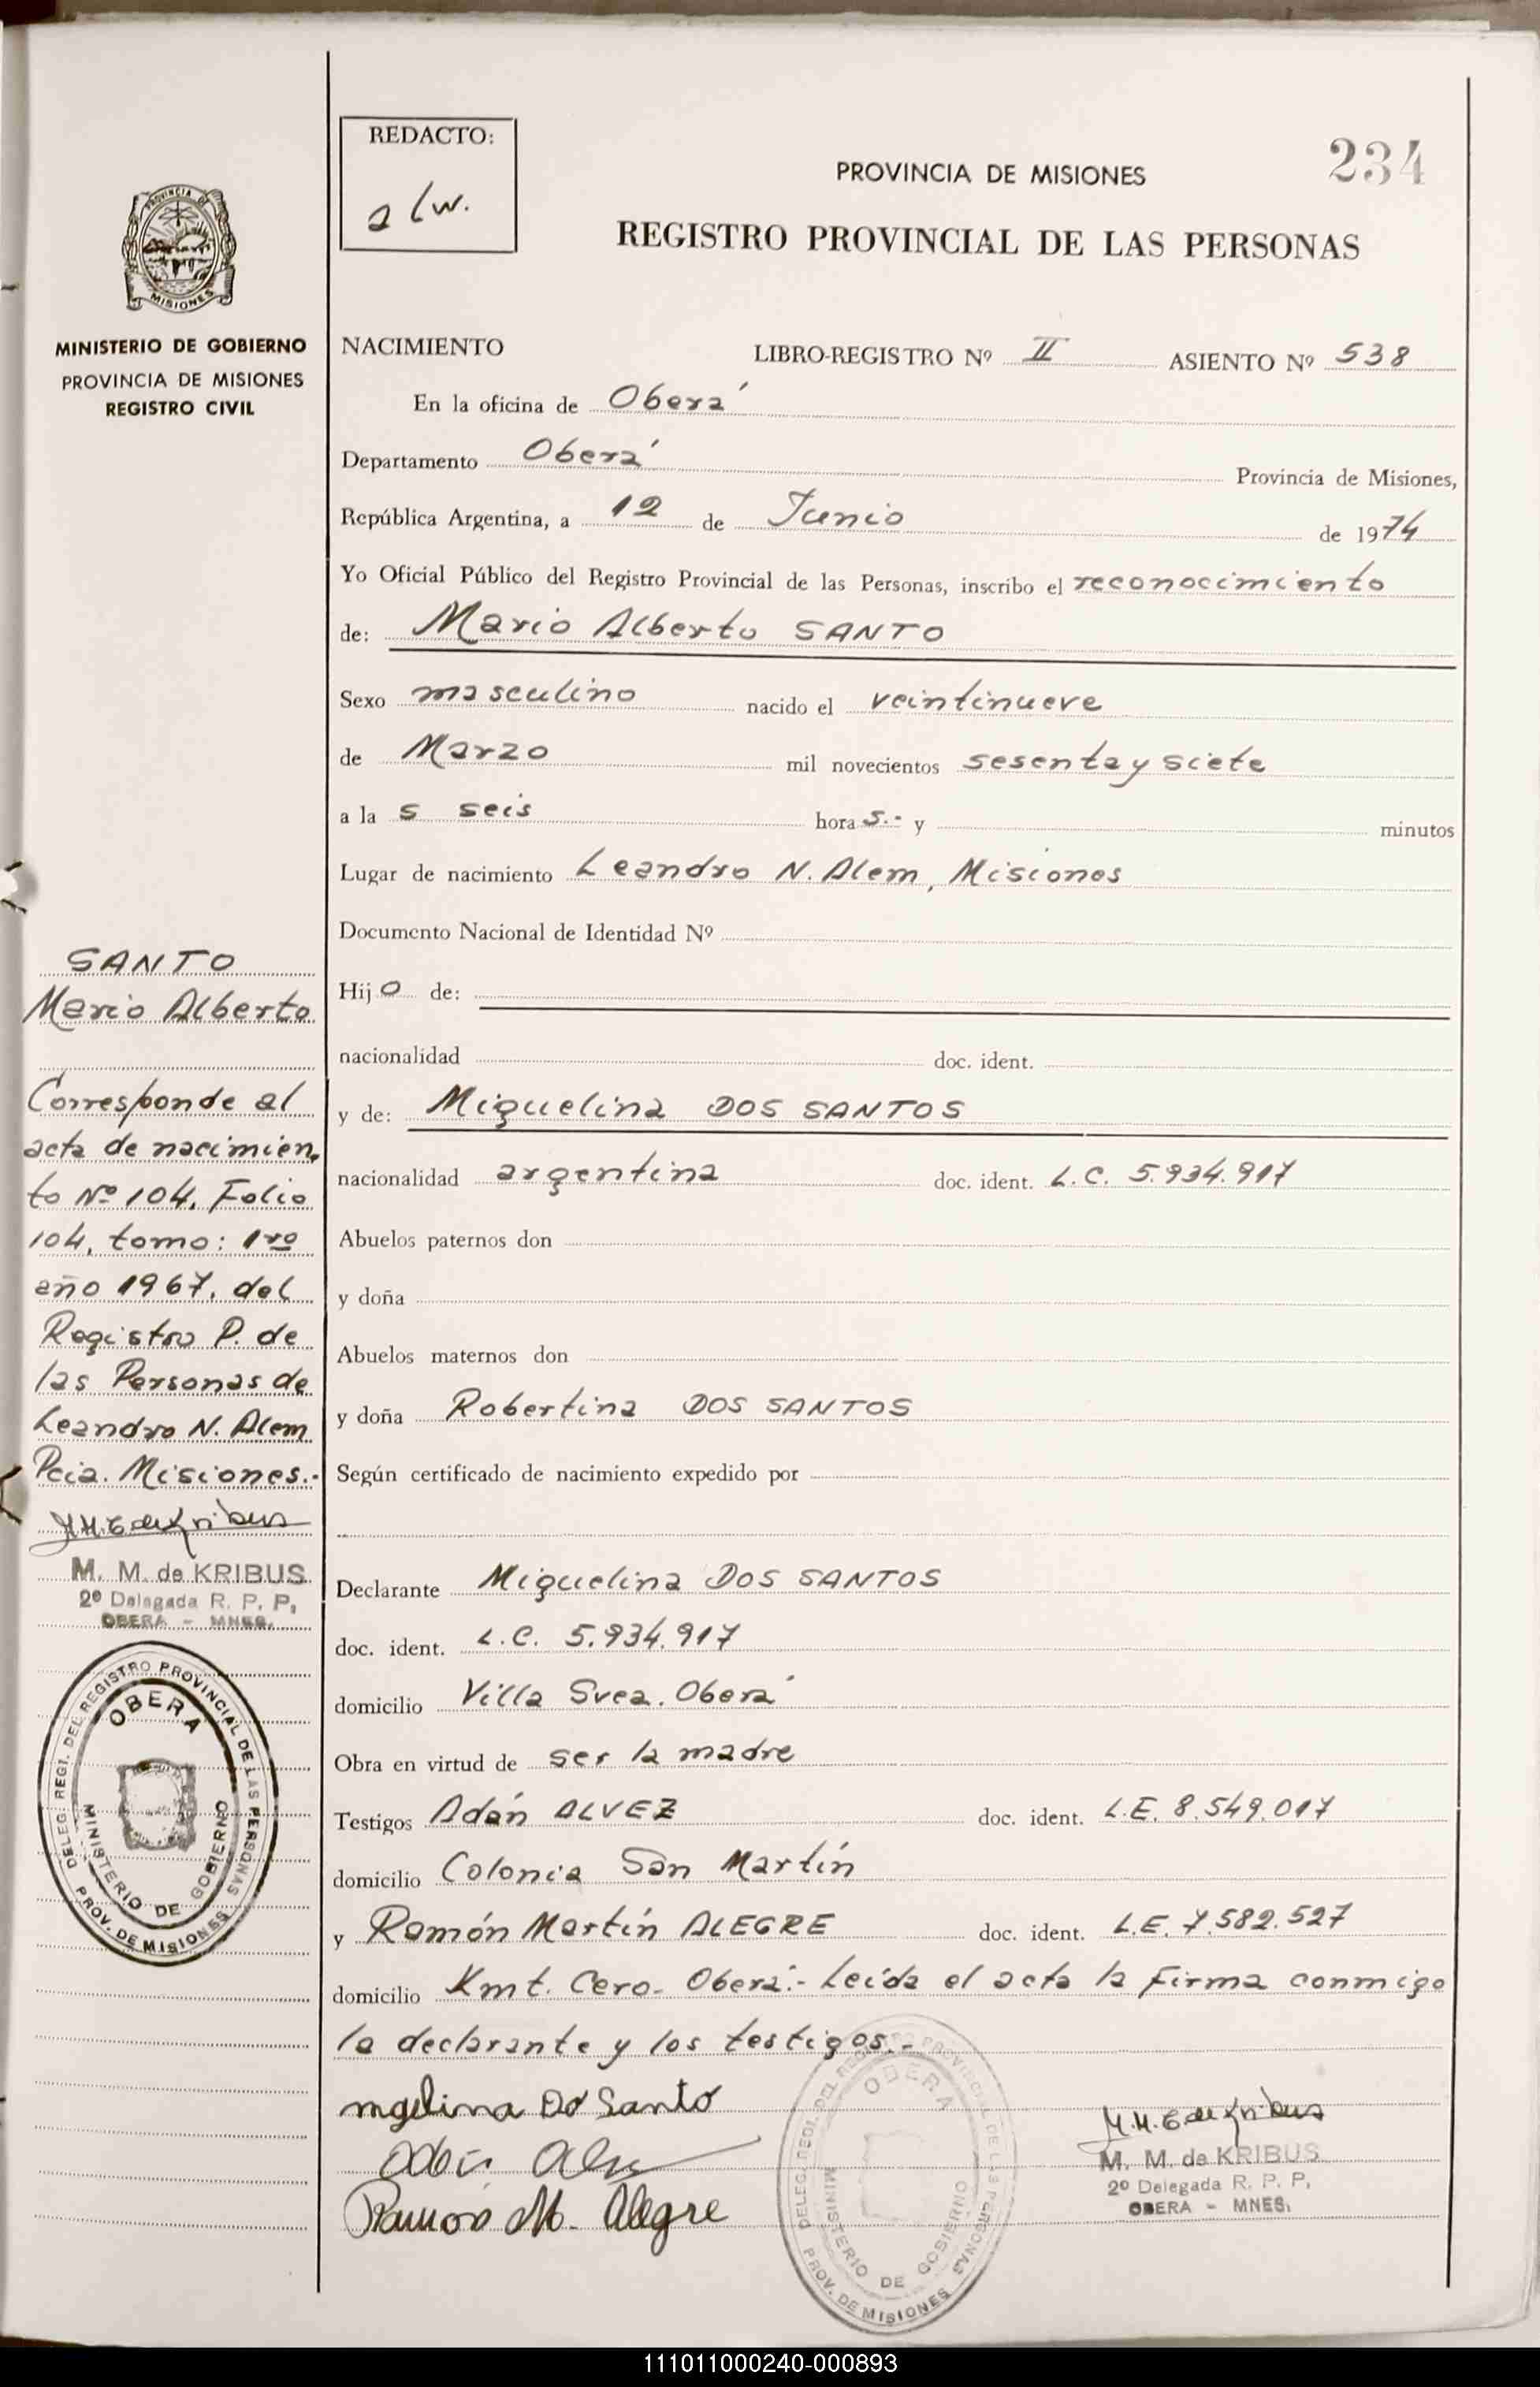 REDACTO:
alw.
234
PROVINCIA DE MISIONES
REGISTRO PROVINCIAL DE LAS PERSONAS
PROVINCIA DE
MISIONES
MINISTERIO DE GOBIERNO
PROVINCIA DE MISIONES
REGISTRO CIVIL
NACIMIENTO LIBRO-REGISTRO Nº II ASIENTO Nº 538
En la oficina de Oberá
Departamento Oberá Provincia de Misiones,
República Argentina, a 12 de Junio de 1974
Yo Oficial Público del Registro Provincial de las Personas, inscribo el reconocimiento
de: Mario Alberto SANTO
Sexo masculino nacido el veintinueve
de Marzo mil novecientos sesenta y siete
a la s seis hora s.- y minutos
Lugar de nacimiento Leandro N. Alem, Misiones
Documento Nacional de Identidad Nº
Hij o de:
nacionalidad doc. ident.
y de: Miquelina DOS SANTOS
nacionalidad argentina doc. ident. L.C. 5.934.917
Abuelos paternos don
y doña
Abuelos maternos don
y doña Robertina DOS SANTOS
Según certificado de nacimiento expedido por
Declarante Miquelina DOS SANTOS
doc. ident. L.C. 5.934.917
domicilio Villa Svea. Oberá
Obra en virtud de ser la madre
Testigos Adán ALVEZ doc. ident. L.E. 8.549.017
domicilio Colonia San Martín
y Ramón Martín ALEGRE doc. ident. L.E. 7.582.527
domicilio Kmt. Cero. Oberá.- Leída el acta la firma conmigo
la declarante y los testigos.-
mgelina Do Santo
Ramón M. Alegre
M. M. de KRIBUS
2º Delegada R. P. P,
OBERA - MNES.
DELEG. REGI. DEL REGISTRO PROVINCIAL DE LAS PERSONAS
OBERA
MINISTERIO DE GOBIERNO
PROV. DE MISIONES
SANTO
Mario Alberto
Corresponde al
acta de nacimien.
to Nº 104, Folio
104, tomo: 1ro
año 1967, del
Registro P. de
las Personas de
Leandro N. Alem
Pcia. Misiones.-
M. M. de KRIBUS
2º Delegada R. P. P,
OBERA - MNES.
DELEG. REGI. DEL REGISTRO PROVINCIAL DE LAS PERSONAS
OBERA
MINISTERIO DE GOBIERNO
PROV. DE MISIONES
111011000240-000893